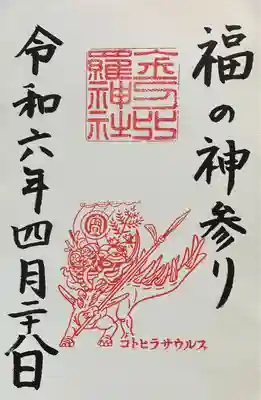 福の神参り
金刀比
羅神社
コトヒラサウルス
令和六年四月二十八日